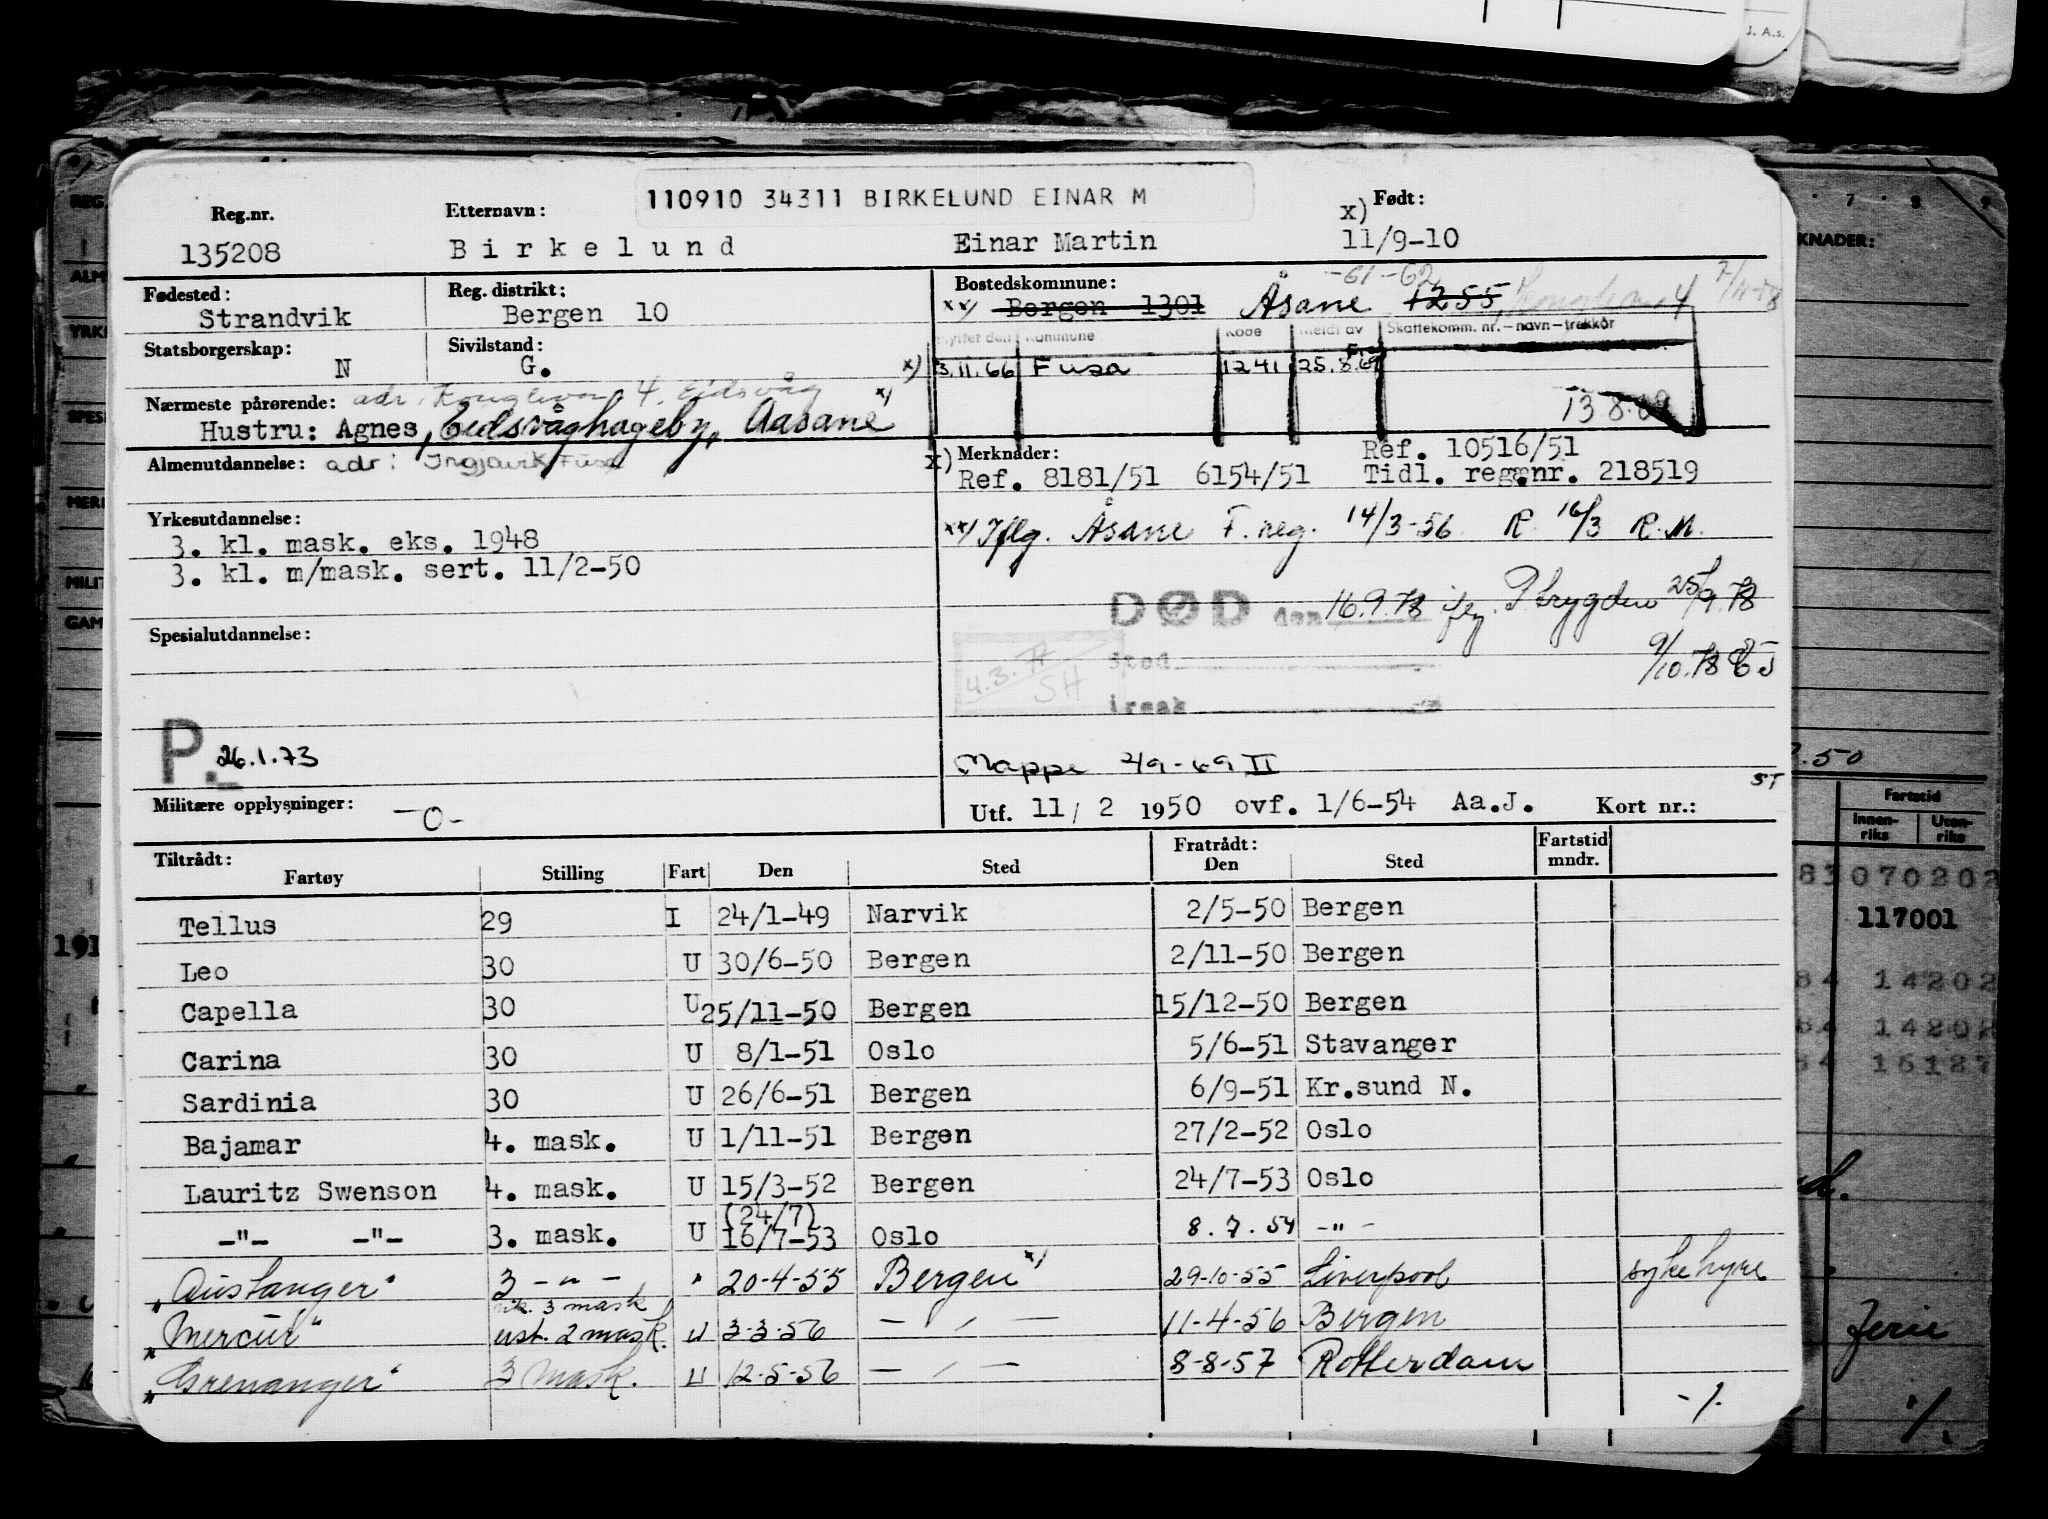 J. A.s.
110910 34311 BIRKELUND EINAR M
Reg.nr. Etternavn: x) Født:
135208 Birkelund Einar Martin 11/9-10
-61-62
Fødested: Reg. distrikt: Bostedskommune:
Strandvik Bergen 10 xx) Bergen 1301 Åsane 1255,
Statsborgerskap: Sivilstand: Flyttet den Kommune Kode Meldt av Skattekomm. nr. – navn – trekkår
N G. x) 3.11.66 Fusa 1241 25.8.69
Nærmeste pårørende: adr. 4. Eidsvåg x) 13 8.69
Hustru: Agnes, Eidsvåghageby, Aasane
Almenutdannelse: adr: Fusa x) Merknader: Ref. 10516/51
Ref. 8181/51 6154/51 Tidl. reg.nr. 218519
Yrkesutdannelse: xx) Iflg. Åsane F. reg. 14/3-56 R. 16/3 R.M.
3. kl. mask. eks. 1948
3. kl. m/mask. sert. 11/2-50
DØD den 16.9.78 25/9.78
Spesialutdannelse: 9/10.78
sted
4.3. SH
årsak
P. 26.1.73
Mappe 49-69 II
ST
Militære opplysninger: -0- Utf. 11/2 1950 ovf. 1/6-54 Aa.J. Kort nr.:
Tiltrådt: Fratrådt: Fartstid
Fartøy Stilling Fart Den Sted Den Sted mndr.
Tellus 29 I 24/1-49 Narvik 2/5-50 Bergen
Leo 30 U 30/6-50 Bergen 2/11-50 Bergen
Capella 30 U 25/11-50 Bergen 15/12-50 Bergen
Carina 30 U 8/1-51 Oslo 5/6-51 Stavanger
Sardinia 30 U 26/6-51 Bergen 6/9-51 Kr.sund N.
Bajamar 4. mask. U 1/11-51 Bergen 27/2-52 Oslo
Lauritz Swenson 4. mask. U 15/3-52 Bergen 24/7-53 Oslo
(24/7)
-"- -"- 3. mask. U 16/7-53 Oslo 8.7.54 -"-
"Austanger" 3 -"- " 20-4-55 Bergen x) 29-10-55 Liverpool sykehyre
vik. 3 mask
"Mercur" ust. 2 mask. U 3-3-56 - " - 11-4-56 Bergen
"Grenanger" 3 mask. U 12-5-56 - " - 8-8-57 Rotterdam
-/.
7 8 9
KNADER:
.50
Fartstid
Innenriks Utenriks
83 070202
117001
84 14202
84 14202
84 16187
ferie
./.